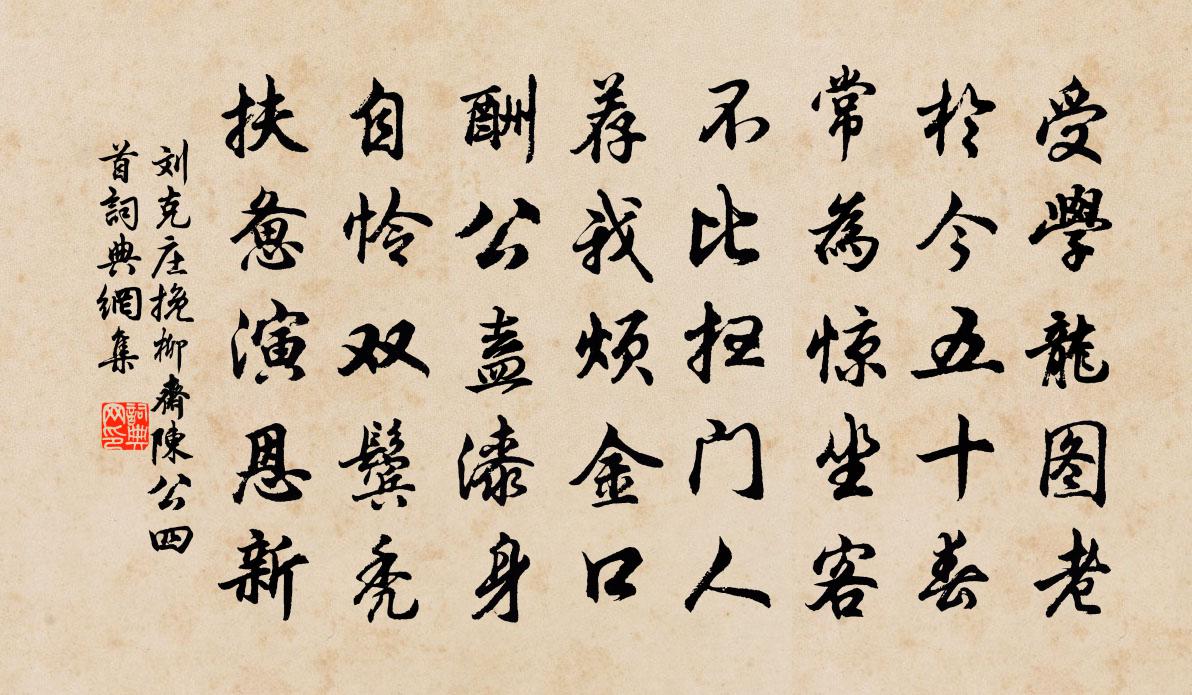 受學龍图老
於今五十春
常為惊坐客
不比扫门人
荐我烦金口
酬公盍漆身
自怜双鬓秃
扶惫演恩新
刘克庄挽柳齋陳公四
首詞典網集
詞典网印